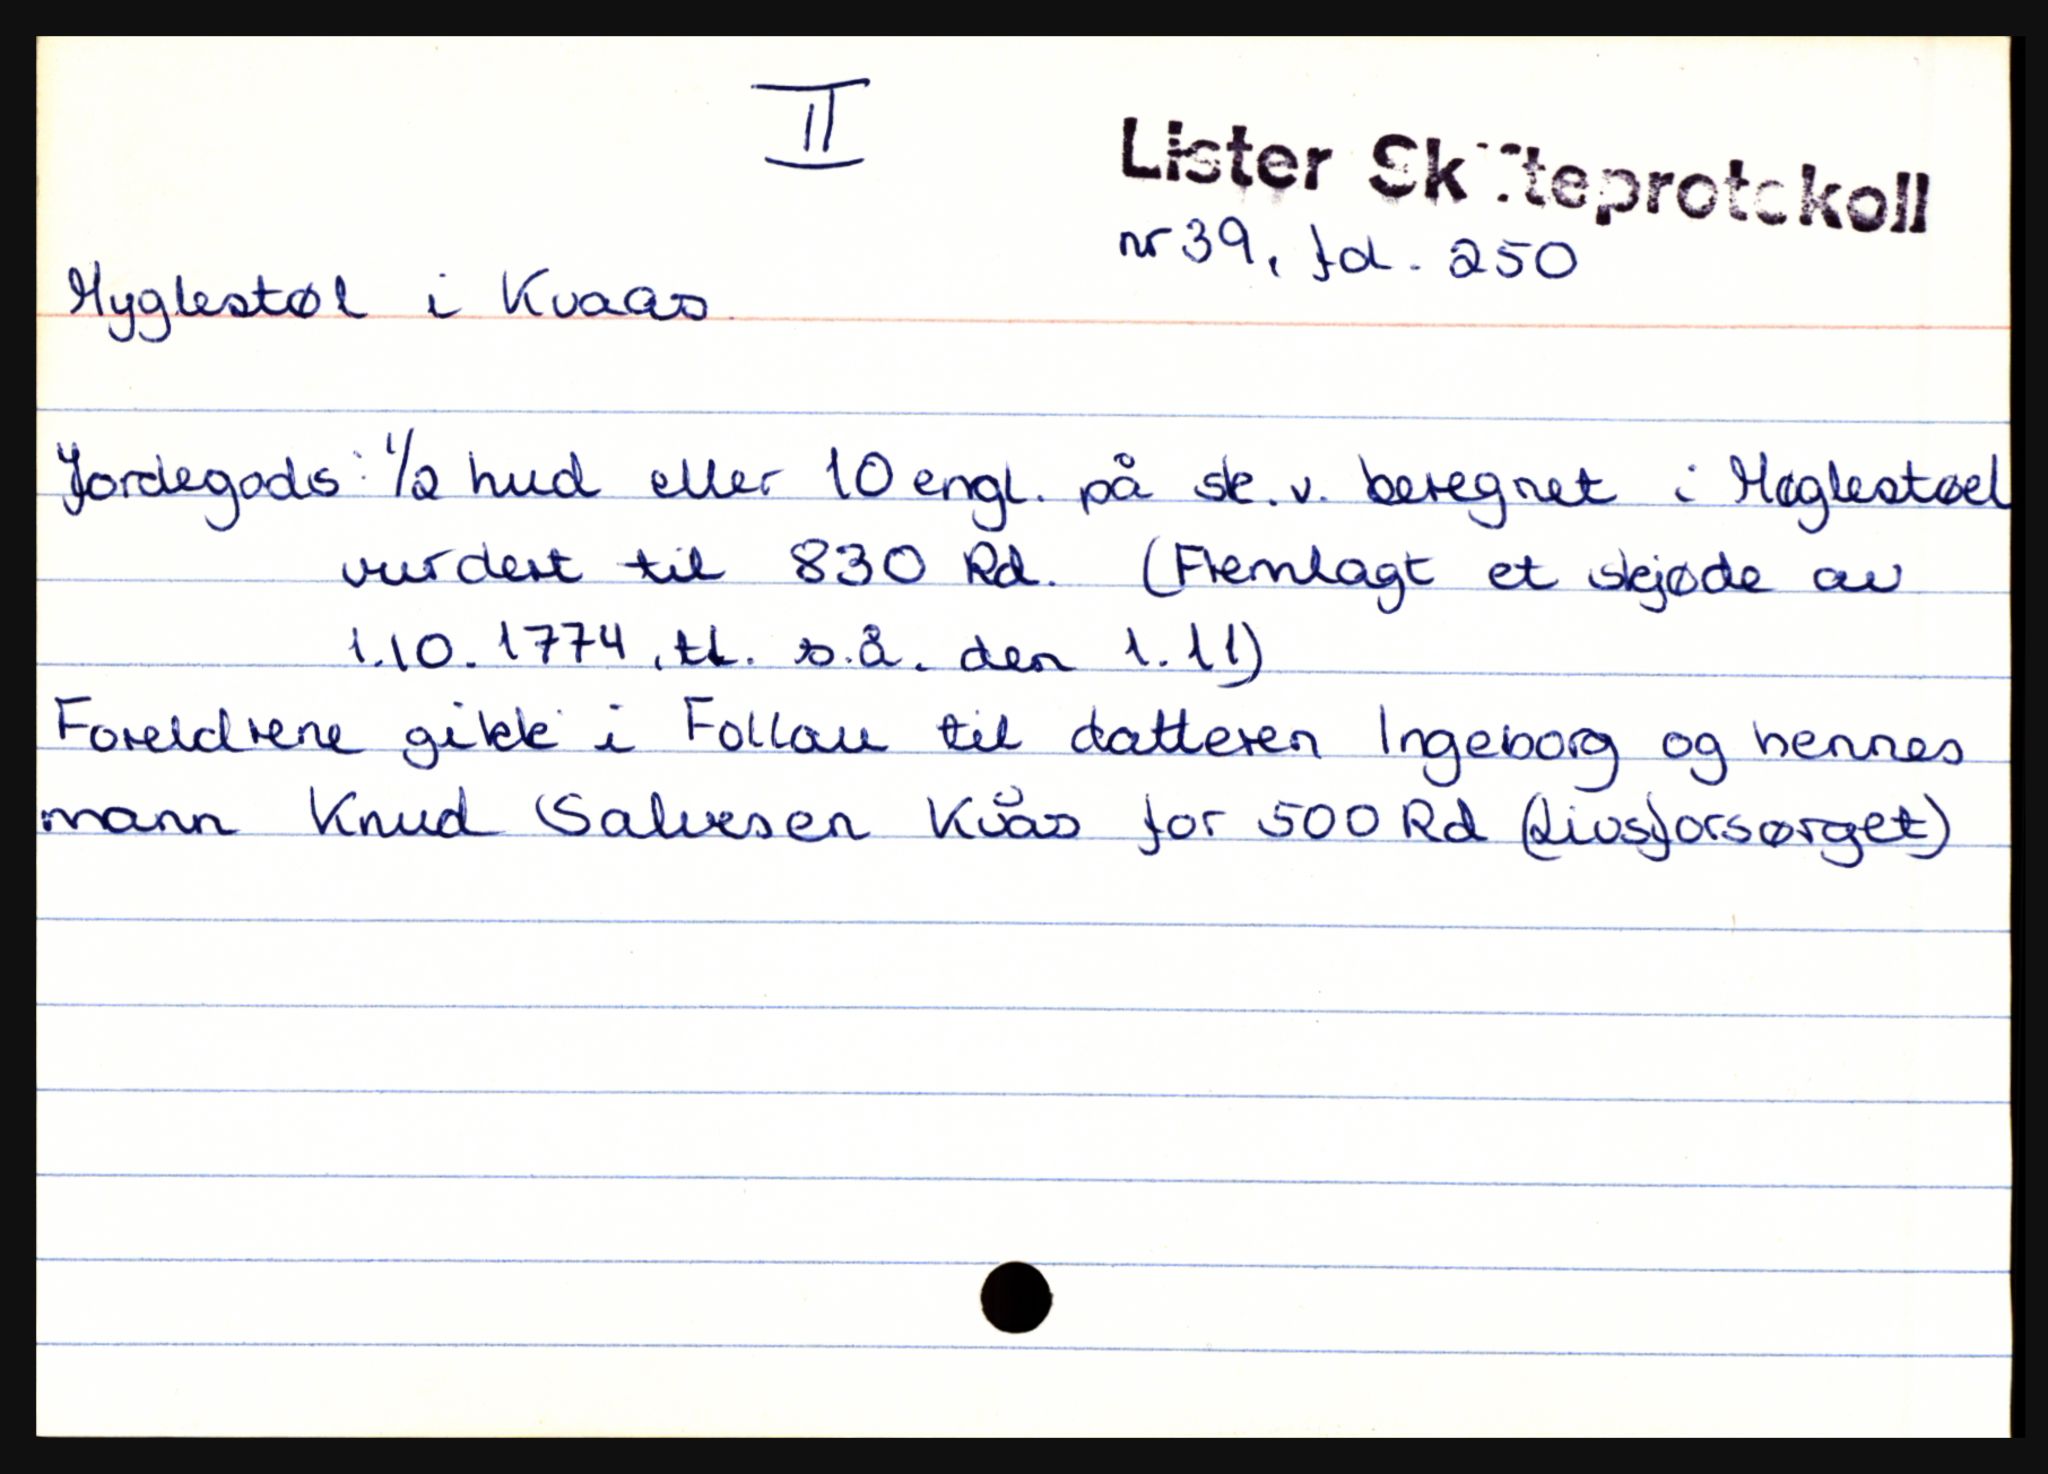 II
Lister Skifteprotokoll
nr 39, fol. 250
Myglestøl i Kvaas.
Jordegods: 1/2 hud eller 10 engl. på sk. v. beregnet i Møglestøel
vurdert til 830 Rd. (Fremlagt et skjøde av
1.10. 1774, tl. s.å. den 1.11)
Foreldrene gikk i Follau til datteren Ingeborg og hennes
mann Knud Salvesen Kvås for 500 Rd (Livsforsørget)